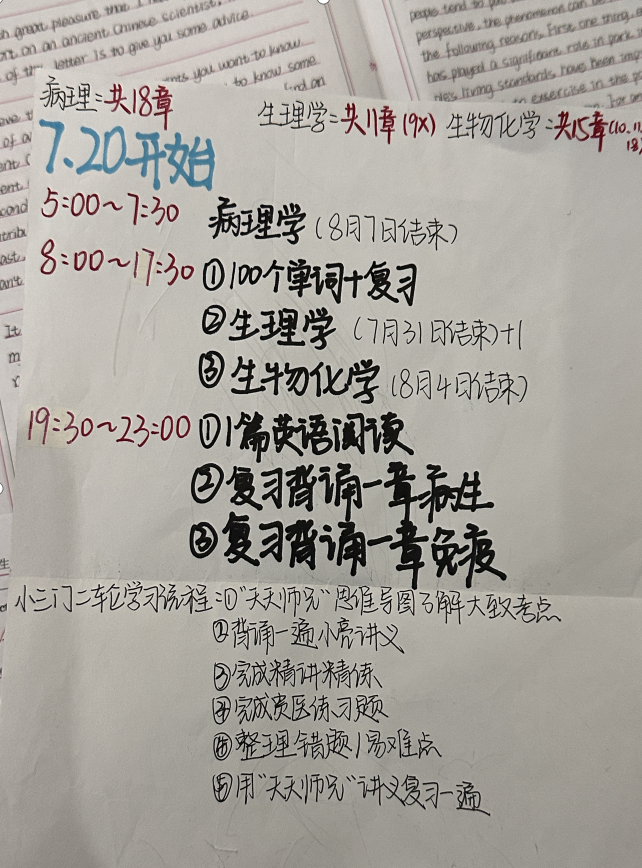 h great pleasure that I h
ort on an ancient Chinese scientist.
of this letter is to give you some advice.
you want to know
to know some
perspective, the phenomenon can be
the following reasons. First one thing
has played a significant role in
living standards have been imp
exercise in the
病理=共18章
生理学=共11章(9X) 生物化学=共15章(10、11、
7.20开始
5:00～7:30 病理学(8月7日结束)
8:00～17:30 ①100个单词+复习
②生理学(7月31日结束)+1
③生物化学(8月4日结束)
19:30～23:00 ①1篇英语阅读
②复习背诵一章病生
③复习背诵一章免疫
小三门二轮学习流程=①"天天师兄"思维导图了解大致考点
②背诵一遍小亮讲义
③完成精讲精练
④完成贵医练习题
⑤整理错题/易难点
⑤用"天天师兄"讲义复习一遍